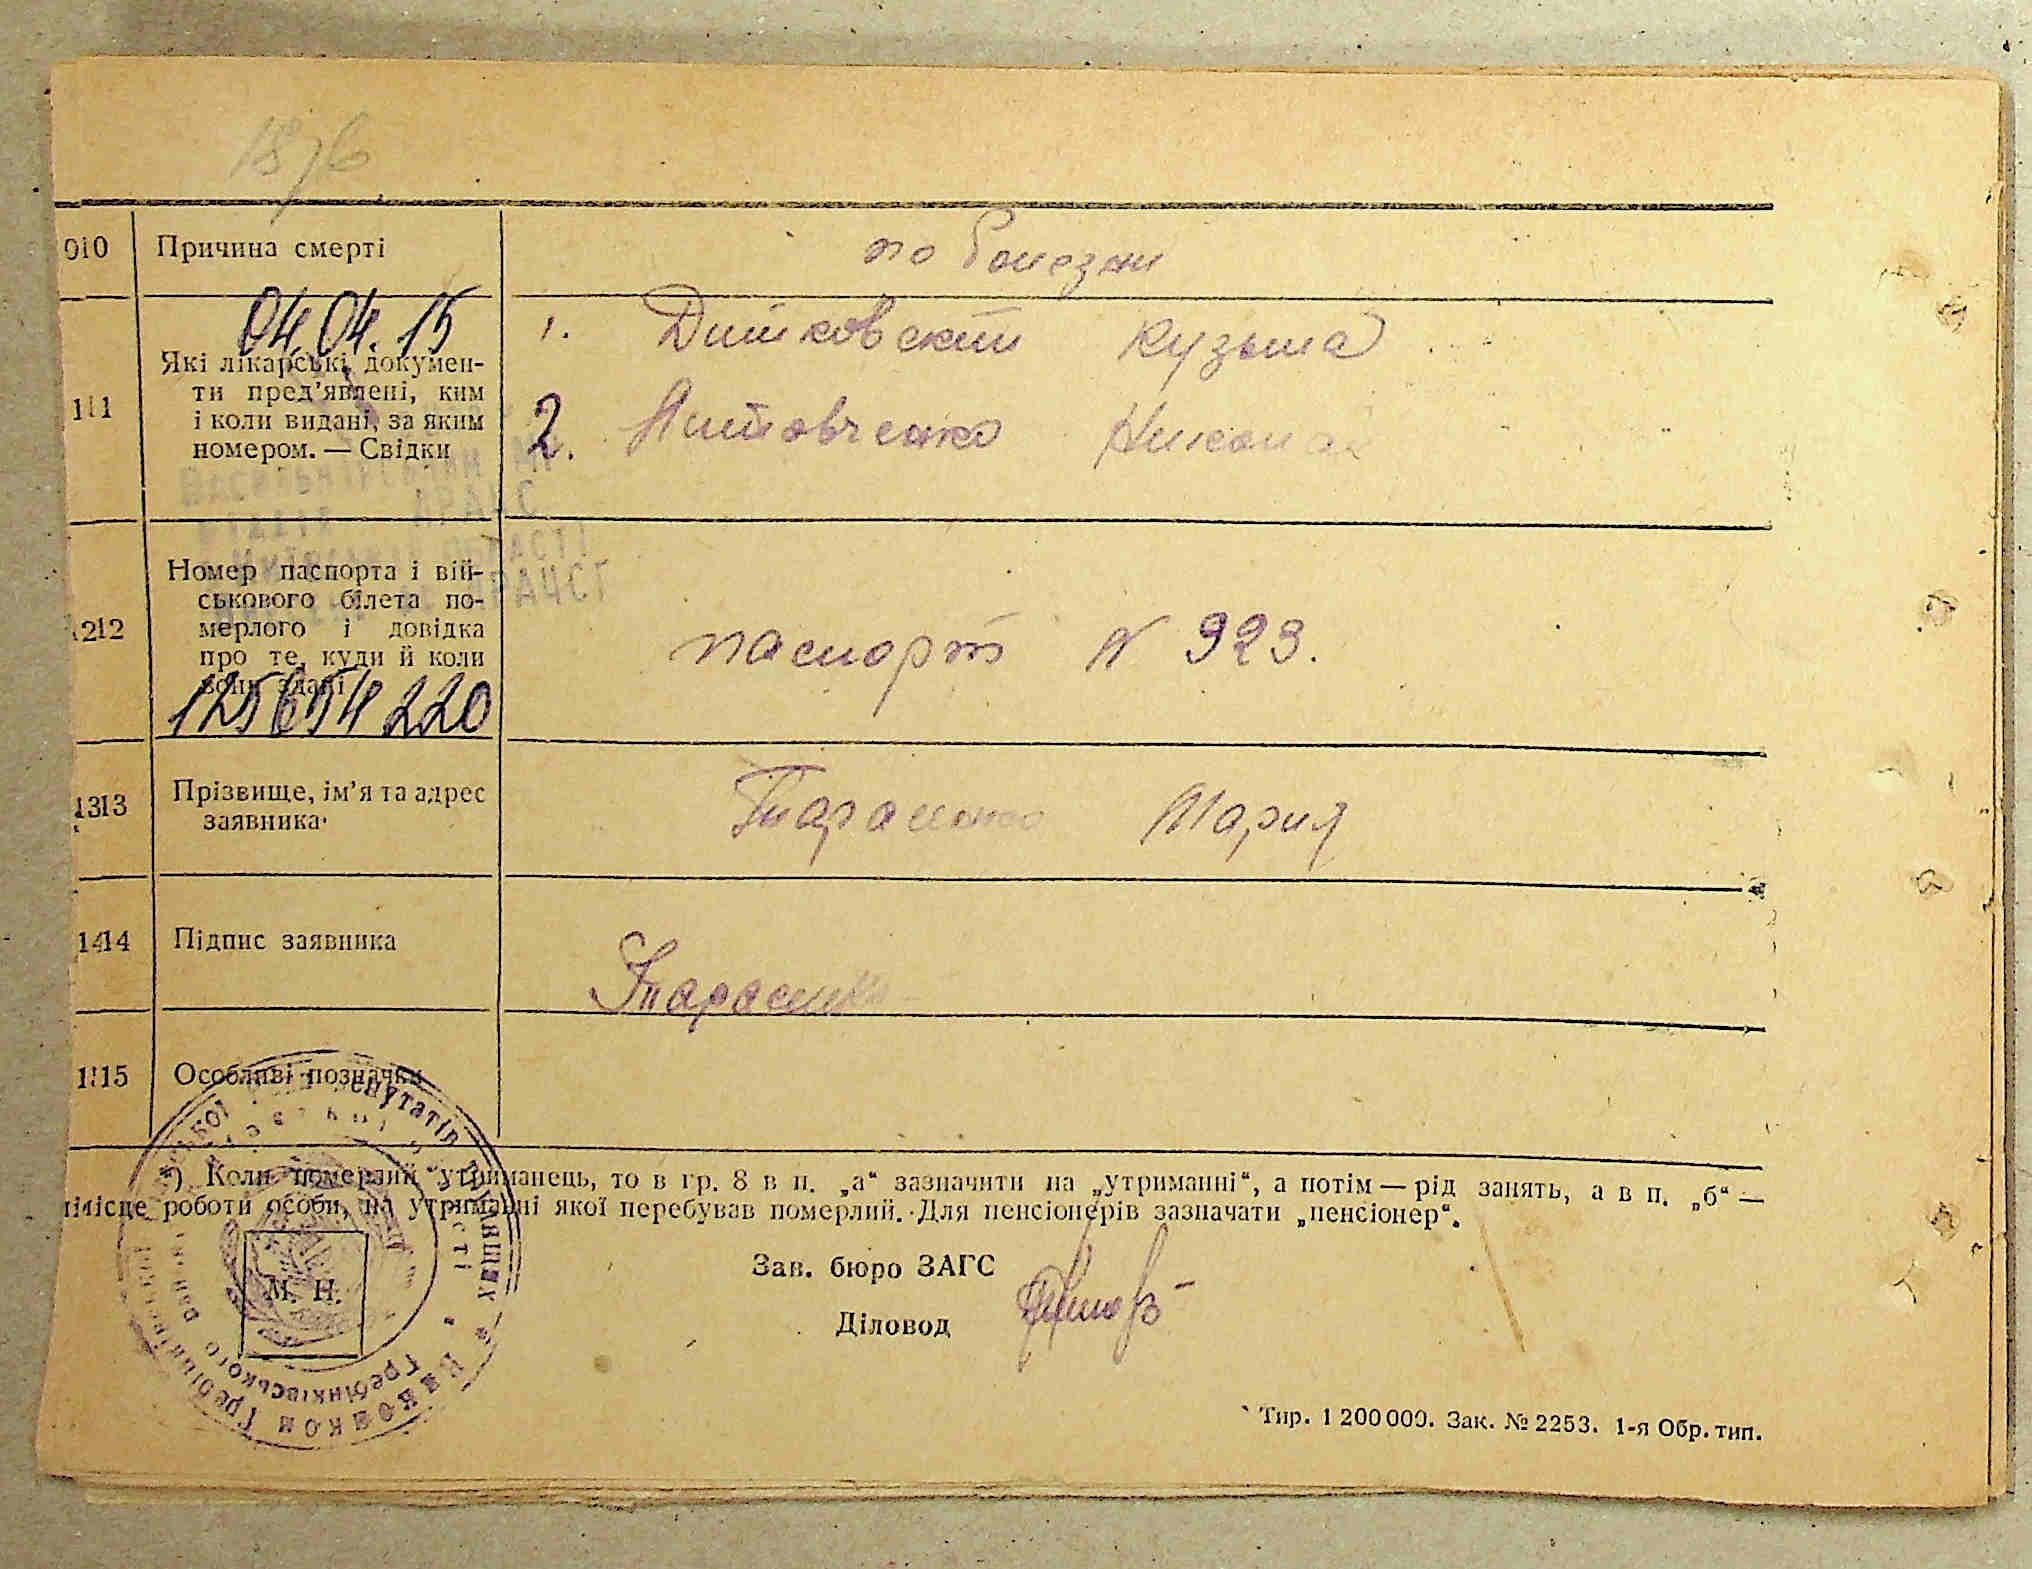 1876
10 Причина смерті по болезни
04.04.15
11 Які лікарські докумен-
ти пред’явлені, ким
і коли видані, за яким
номером. — Свідки
1. Дитковский Кузьма
2. Литовченко Николай
АРАЦС
12 Номер паспорта і вій-
ськового білета по-
мерлого і довідка
про те, куди й коли
вони здані
паспорт № 923.
125654220
13 Прізвище, ім’я та адрес
заявника
Тарасенко Мария
14 Підпис заявника
15 Особливі позначки
*) Коли померлий утриманець, то в гр. 8 в п. „а“ зазначити на „утриманні“, а потім — рід занять, а в п. „б“ —
місце роботи особи, на утриманні якої перебував померлий. Для пенсіонерів зазначати „пенсіонер“.
М. П.
Зав. бюро ЗАГС
Діловод
Гребінківського
Тир. 1 200 000. Зак. № 2253. 1-я Обр. тип.